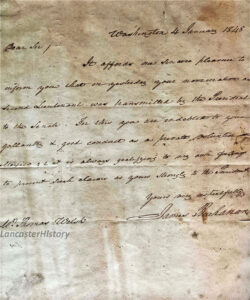 Washington 4 January 1848
Dear Sir,
It affords me sincere pleasure to
inform you that on yesterday your nomination as
Second Lieutenant was transmitted by the President
to the Senate. For this you are indebted to your
gallantry & good conduct as a private volunteer in
Mexico; & it is always gratifying to me
to present such claims as yours
Yours very respectfully
James Buchanan
Mr. Thomas Welsh
LancasterHistory